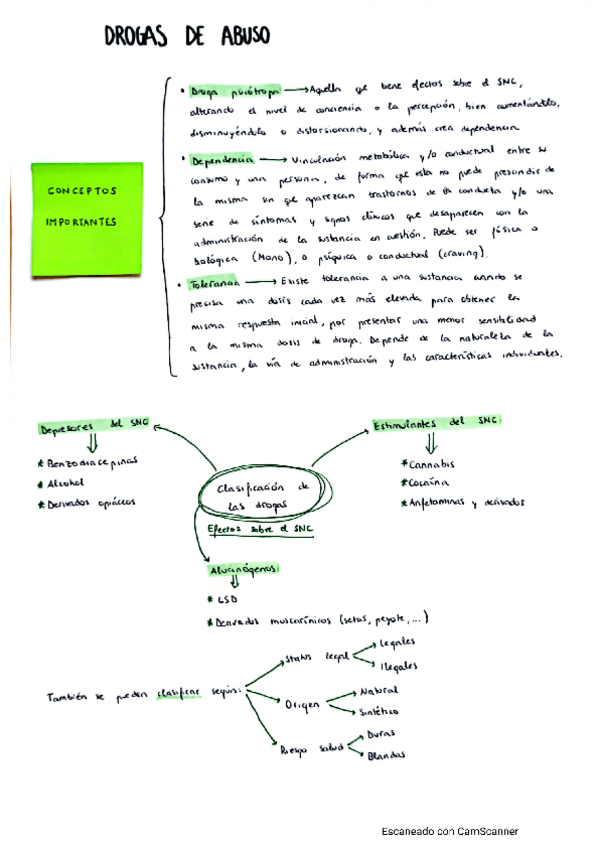 DROGAS DE ABUSO
CONCEPTOS
IMPORTANTES
• Droga psicótropa → Aquella qe tiene efectos sobre el SNC,
alterando el nivel de conciencia o la percepción, bien aumentándolo,
disminuyéndolo o distorsionando, y además crea dependencia
• Dependencia → Vinculación metabólica y/o conductual entre su
consumo y una persona, de forma que esta no puede prescindir de
la misma sin que aparezcan trastornos de la conducta y/o una
serie de síntomas y signos clínicos que desaparecen con la
administración de la sustancia en cuestión. Puede ser física o
biológica (Mono), o psíquica o conductual (craving).
• Tolerancia → Existe tolerancia a una sustancia cuando se
precisa una dosis cada vez más elevada para obtener la
misma respuesta inicial, por presentar una menor sensibilidad
a la misma dosis de droga. Depende de la naturaleza de la
sustancia, la vía de administración y las características individuales.
Depresores del SNC
* Benzodiacepinas
* Alcohol
* Derivados opiáceos
Estimulantes del SNC
* Cannabis
* Cocaína
* Anfetaminas y derivados
Clasificación de
las drogas
Efectos sobre el SNC
Alucinógenos
* LSD
* Derivados muscarínicos (setas, peyote, ...)
También se pueden clasificar según:
Status legal
Legales
Ilegales
Origen
Natural
Sintético
Riesgo salud
Duras
Blandas
Escaneado con CamScanner